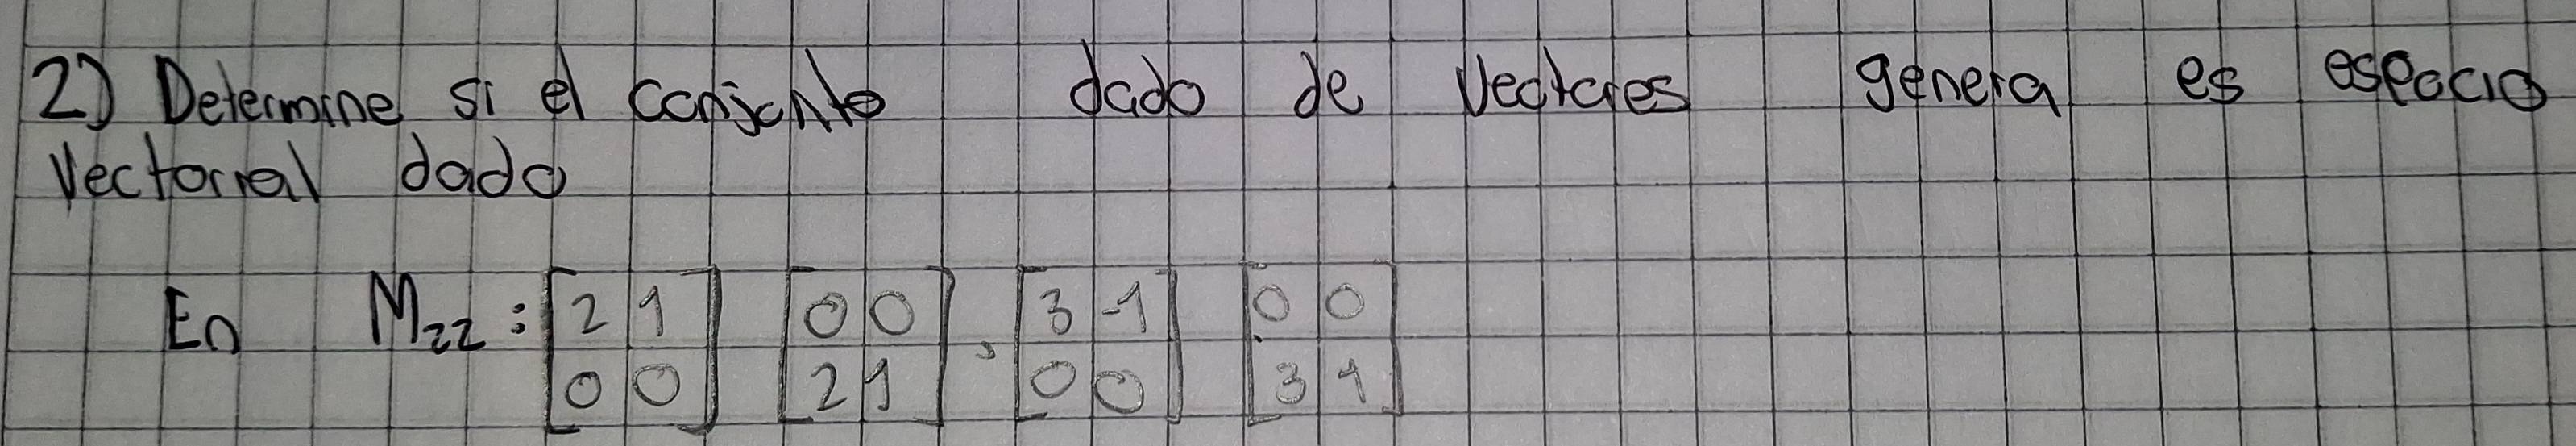 2) Determine si el conjunto dado de vectores genera es espacio
Vectorial dado
En M22 : [2 1] [0 0] , [3 -1] [0 0]
[0 0] [2 1] [0 0] [3 1]